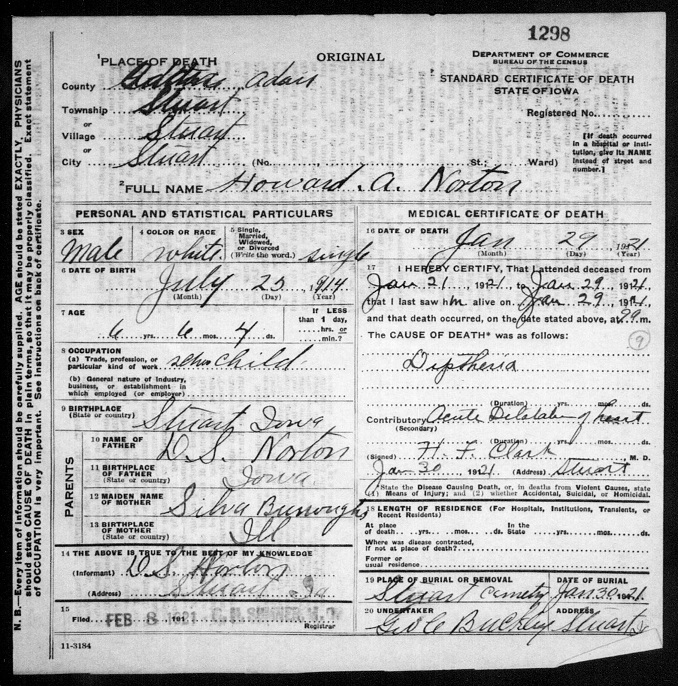 1298
¹PLACE OF DEATH
ORIGINAL
DEPARTMENT OF COMMERCE
BUREAU OF THE CENSUS
STANDARD CERTIFICATE OF DEATH
STATE OF IOWA
County Adair
Township Stuart
or
Village Stuart
or
City Stuart (No. St.; Ward)
Registered No.
[If death occurred in a hospital or institution, give its NAME instead of street and number.]
² FULL NAME Howard A. Norton
PERSONAL AND STATISTICAL PARTICULARS
3 SEX Male
4 COLOR OR RACE white
5 Single, Married, Widowed, or Divorced (Write the word.) single
6 DATE OF BIRTH July 25 1914
(Month) (Day) (Year)
7 AGE 6 yrs. 6 mos. 4 ds.
If LESS than 1 day, hrs. or min.?
8 OCCUPATION
(a) Trade, profession, or particular kind of work child
(b) General nature of industry, business, or establishment in which employed (or employer)
9 BIRTHPLACE (State or country) Stuart Iowa
PARENTS
10 NAME OF FATHER D.S. Norton
11 BIRTHPLACE OF FATHER (State or country) Iowa
12 MAIDEN NAME OF MOTHER Silva Burroughs
13 BIRTHPLACE OF MOTHER (State or country) Ill
14 THE ABOVE IS TRUE TO THE BEST OF MY KNOWLEDGE
(Informant) D.S. Norton
(Address) Stuart Ia
15
Filed FEB 8 1921 191
Registrar
11-3184
MEDICAL CERTIFICATE OF DEATH
16 DATE OF DEATH Jan 29 1921
(Month) (Day) (Year)
17 I HEREBY CERTIFY, That I attended deceased from
Jan 21 1921, to Jan 29, 1921,
that I last saw him alive on Jan 29, 1921,
and that death occurred, on the date stated above, at 9 m.
The CAUSE OF DEATH* was as follows:
9
Diptheria
(Duration) yrs. mos. ds.
Contributory Acute Dilatation of heart
(Secondary)
(Duration) yrs. mos. ds.
(Signed) H. F. Clark M. D.
Jan 30 1921 (Address) Stuart
*State the Disease Causing Death, or, in deaths from Violent Causes, state (1) Means of Injury; and (2) whether Accidental, Suicidal, or Homicidal.
18 LENGTH OF RESIDENCE (For Hospitals, Institutions, Transients, or Recent Residents)
At place of death yrs. mos. ds. In the State yrs. mos. ds.
Where was disease contracted, if not at place of death?
Former or usual residence
19 PLACE OF BURIAL OR REMOVAL Stuart cemetery
DATE OF BURIAL Jan 30 1921
20 UNDERTAKER Geo C Buckley
ADDRESS Stuart Ia
N. B.—Every item of information should be carefully supplied. AGE should be stated EXACTLY. PHYSICIANS
should state CAUSE OF DEATH in plain terms, so that it may be properly classified. Exact statement
of OCCUPATION is very important. See instructions on back of certificate.